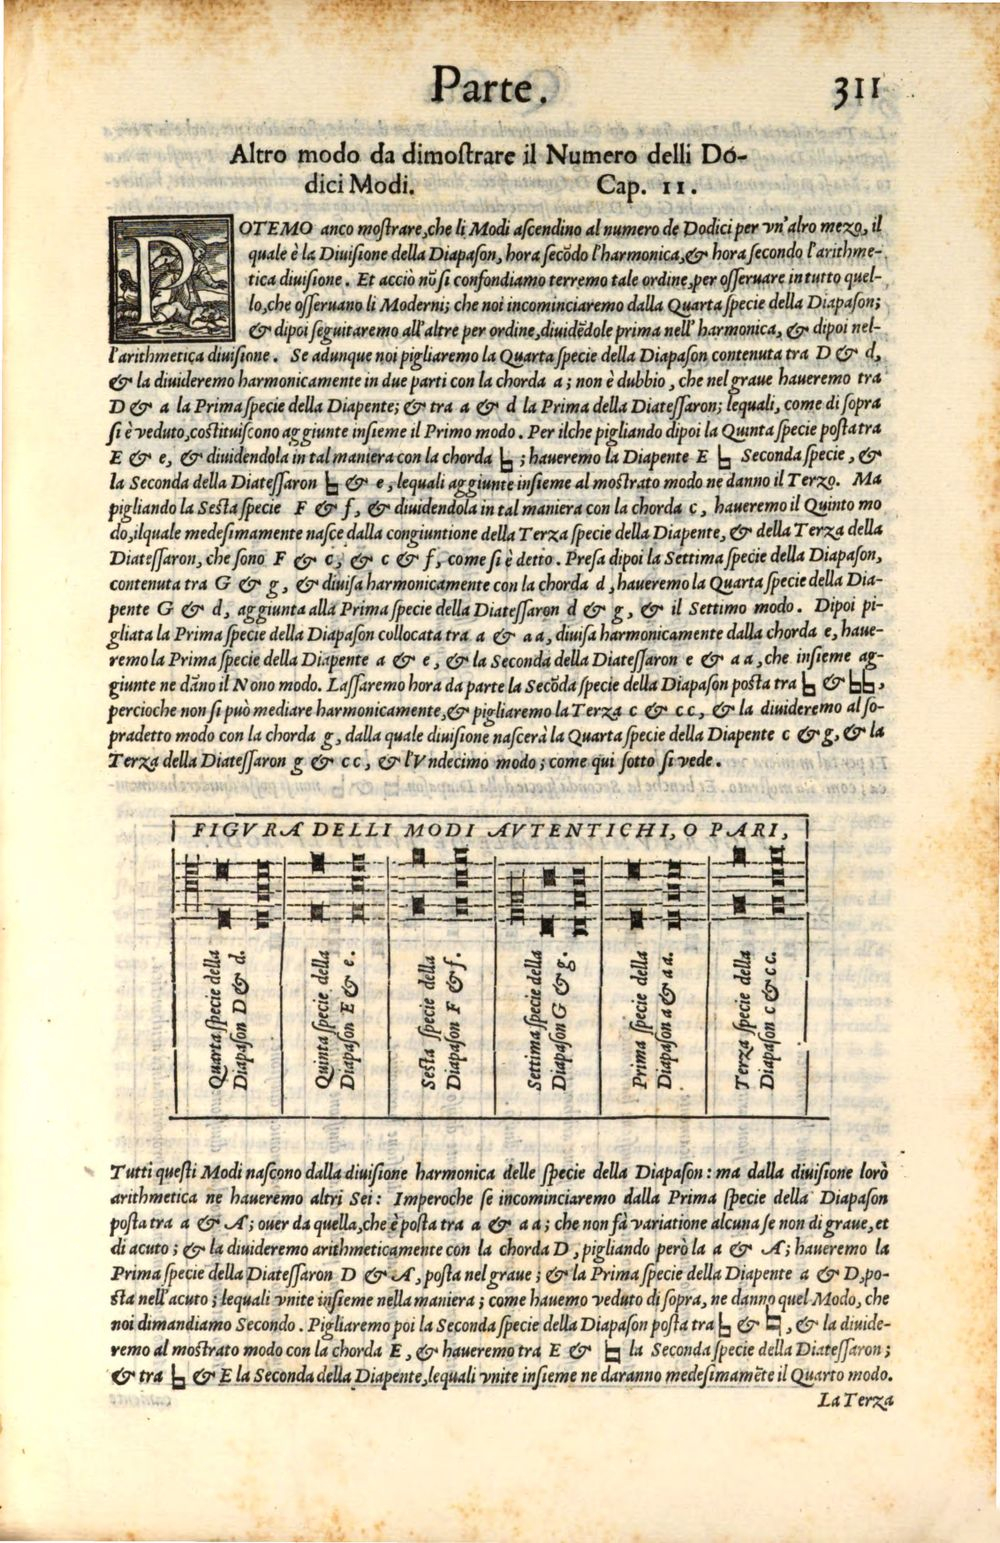 Parte. 311
Altro modo da dimoſtrare il Numero delli Do-
dici Modi. Cap. 11.
POTEMO anco moſtrare, che li Modi aſcendino al numero de Dodici per vn'alro mezo, il
quale è la Diuiſione della Diapaſon, hora ſecōdo l'harmonica, & hora ſecondo l'arithme-
tica diuiſione. Et acciò nō ſi confondiamo terremo tale ordine, per oſſeruare in tutto quel-
lo, che oſſeruano li Moderni; che noi incominciaremo dalla Quarta ſpecie della Diapaſon;
& dipoi ſeguitaremo all'altre per ordine, diuidēdole prima nell'harmonica, & dipoi nel-
l'arithmetica diuiſione. Se adunque noi pigliaremo la Quarta ſpecie della Diapaſon contenuta tra D & d,
& la diuideremo harmonicamente in due parti con la chorda a; non è dubbio, che nel graue haueremo tra
D & a la Prima ſpecie della Diapente; & tra a & d la Prima della Diateſſaron; lequali, come di ſopra
ſi è veduto, coſtituiſcono aggiunte inſieme il Primo modo. Per ilche pigliando dipoi la Quinta ſpecie poſta tra
E & e, & diuidendola in tal maniera con la chorda ♮; haueremo la Diapente E ♮ Seconda ſpecie, &
la Seconda della Diateſſaron ♮ & e, lequali aggiunte inſieme al moſtrato modo ne danno il Terzo. Ma
pigliando la Seſta ſpecie F & f, & diuidendola in tal maniera con la chorda c, haueremo il Quinto mo
do, ilquale medeſimamente naſce dalla congiuntione della Terza ſpecie della Diapente, & della Terza della
Diateſſaron, che ſono F & c, & c & f, come ſi è detto. Preſa dipoi la Settima ſpecie della Diapaſon,
contenuta tra G & g, & diuiſa harmonicamente con la chorda d, haueremo la Quarta ſpecie della Dia-
pente G & d, aggiunta alla Prima ſpecie della Diateſſaron d & g, & il Settimo modo. Dipoi pi-
gliata la Prima ſpecie della Diapaſon collocata tra a & aa, diuiſa harmonicamente dalla chorda e, haue-
remo la Prima ſpecie della Diapente a & e, & la Seconda della Diateſſaron e & aa, che inſieme ag-
giunte ne dāno il Nono modo. Laſſaremo hora da parte la Secōda ſpecie della Diapaſon poſta tra ♮ & ♮♮,
percioche non ſi può mediare harmonicamente, & pigliaremo la Terza c & cc, & la diuideremo al ſo-
pradetto modo con la chorda g, dalla quale diuiſione naſcerà la Quarta ſpecie della Diapente c & g, & la
Terza della Diateſſaron g & cc, & l'Vndecimo modo; come qui ſotto ſi vede.
FIGVRA DELLI MODI AVTENTICHI, O PARI,
Quarta ſpecie della
Diapaſon D & d.
Quinta ſpecie della
Diapaſon E & e.
Seſta ſpecie della
Diapaſon F & f.
Settima ſpecie della
Diapaſon G & g.
Prima ſpecie della
Diapaſon a & aa.
Terza ſpecie della
Diapaſon c & cc.
Tutti queſti Modi naſcono dalla diuiſione harmonica delle ſpecie della Diapaſon: ma dalla diuiſione loro
arithmetica ne haueremo altri Sei: Imperoche ſe incominciaremo dalla Prima ſpecie della Diapaſon
poſta tra a & A; ouer da quella, che è poſta tra a & aa; che non fà variatione alcuna ſe non di graue, et
di acuto; & la diuideremo arithmeticamente con la chorda D, pigliando però la a & A; haueremo la
Prima ſpecie della Diateſſaron D & A, poſta nel graue; & la Prima ſpecie della Diapente a & D, po-
ſta nell'acuto; lequali vnite inſieme nella maniera; come hauemo veduto di ſopra, ne danno quel Modo, che
noi dimandiamo Secondo. Pigliaremo poi la Seconda ſpecie della Diapaſon poſta tra ♮ & ♮, & la diuide-
remo al moſtrato modo con la chorda E, & haueremo tra E & ♮ la Seconda ſpecie della Diateſſaron;
& tra ♮ & E la Seconda della Diapente, lequali vnite inſieme ne daranno medeſimamēte il Quarto modo.
La Terza